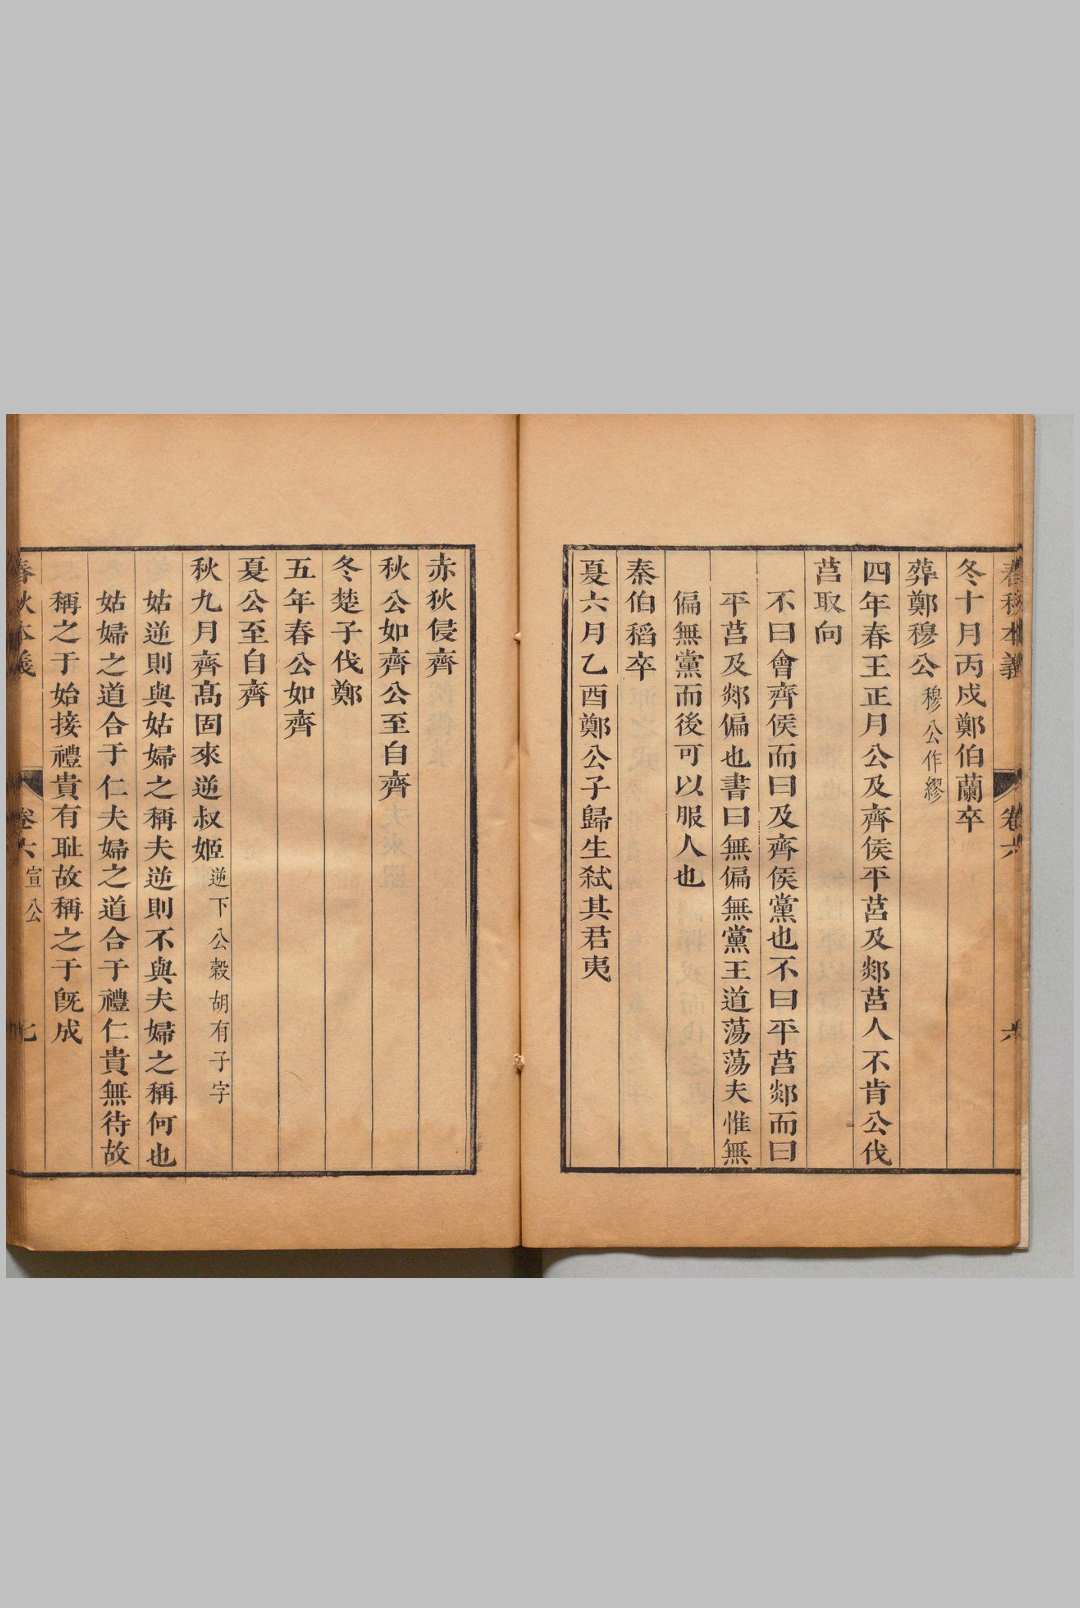 春秋本義　卷六　六
冬十月丙戍鄭伯蘭卒
葬鄭穆公穆公作繆
四年春王正月公及齊侯平莒及郯莒人不肯公伐
莒取向
不曰會齊侯而曰及齊侯黨也不曰平莒郯而曰
平莒及郯偏也書曰無偏無黨王道蕩蕩夫惟無
偏無黨而後可以服人也
秦伯稻卒
夏六月乙酉鄭公子歸生弒其君夷
赤狄侵齊
秋公如齊公至自齊
冬楚子伐鄭
五年春公如齊
夏公至自齊
秋九月齊高固來逆叔姬逆下公穀胡有子字
姑逆則與姑婦之稱夫逆則不與夫婦之稱何也
姑婦之道合于仁夫婦之道合于禮仁貴無待故
稱之于始接禮貴有恥故稱之于旣成
春秋本義　卷六宣公　七